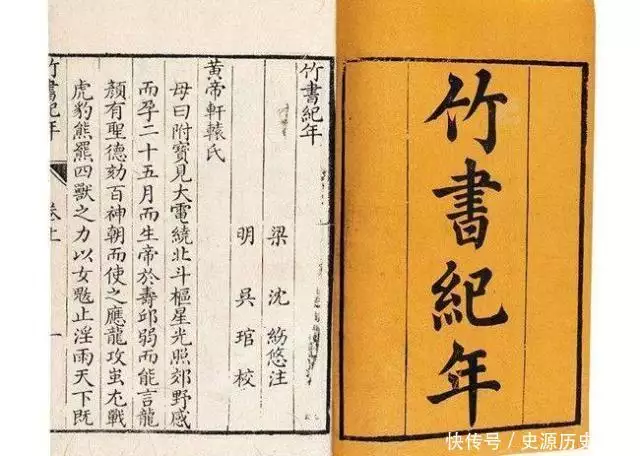 竹書紀年
竹書紀年
梁 沈 約 悠注
明 吳 琯 校
黃帝軒轅氏
母曰附寶見大電繞北斗樞星光照郊野感
而孕二十五月而生帝於壽邱弱而能言龍
顏有聖德劾百神朝而使之應龍攻蚩尤戰
虎豹熊羆四獸之力以女魃止淫雨天下既
竹書紀年 卷上 一
快传号 / 史源历史